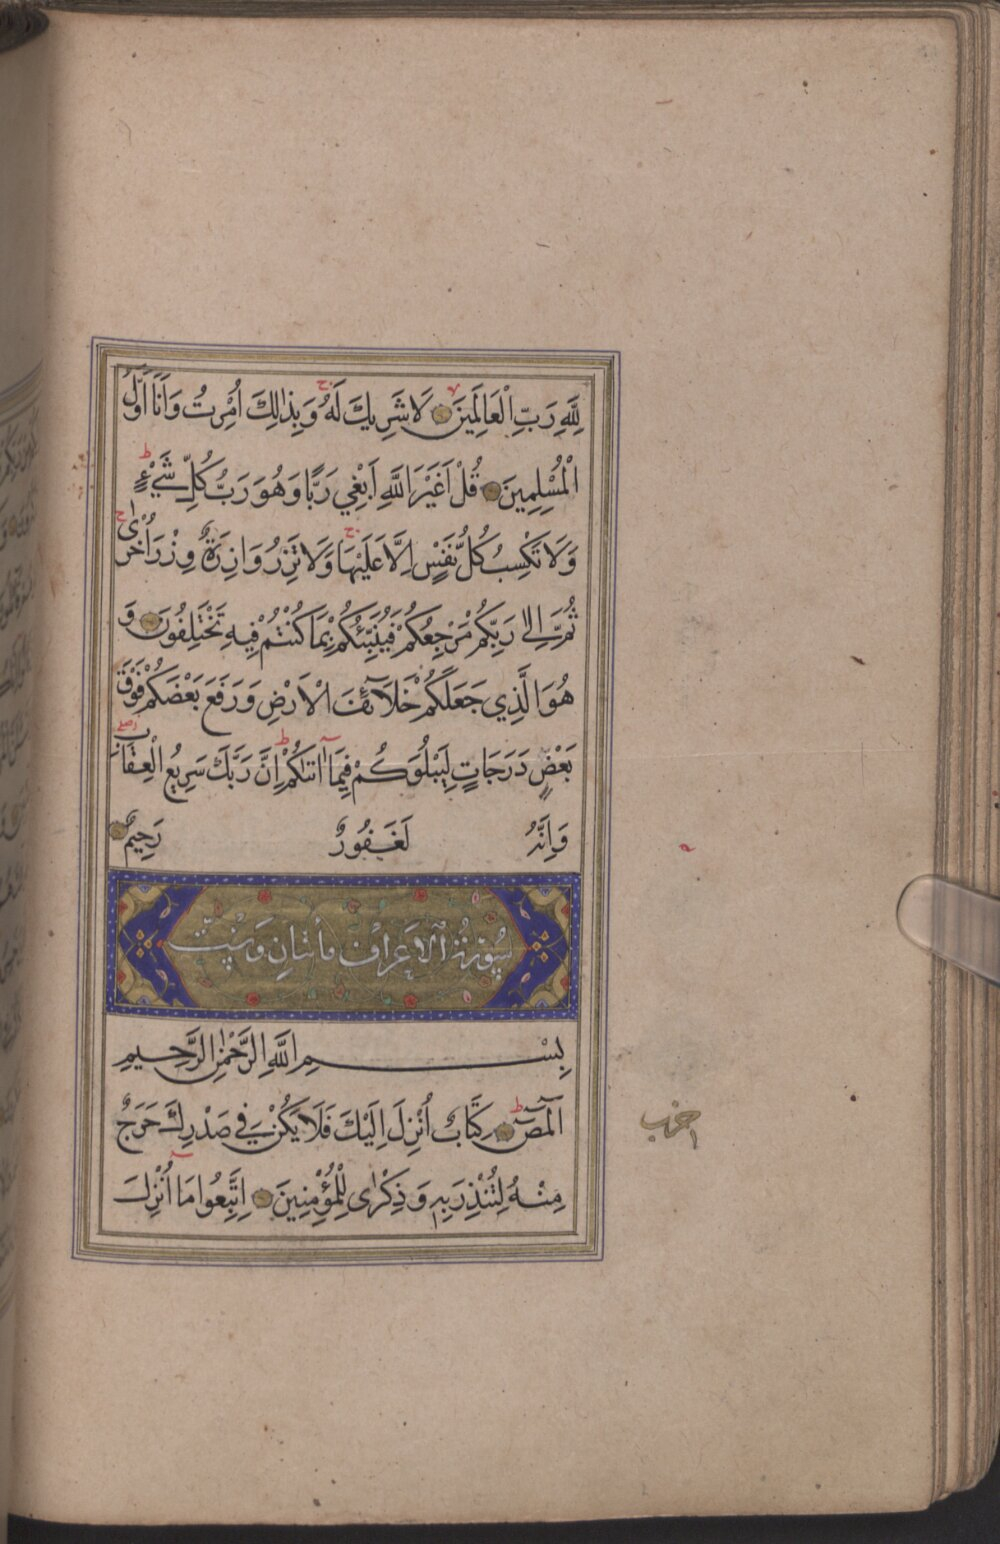 لِلَّهِ رَبِّ الْعَالَمِينَ لَا شَرِيكَ لَهُ وَبِذَالِكَ أُمِرْتُ وَأَنَا أَوَّلُ
الْمُسْلِمِينَ قُلْ أَغَيْرَ اللَّهِ أَبْغِي رَبًّا وَهُوَ رَبُّ كُلِّ شَيْءٍ
وَلَا تَكْسِبُ كُلُّ نَفْسٍ إِلَّا عَلَيْهَا وَلَا تَزِرُ وَازِرَةٌ وِزْرَ أُخْرَى
ثُمَّ إِلَى رَبِّكُمْ مَرْجِعُكُمْ فَيُنَبِّئُكُمْ بِمَا كُنْتُمْ فِيهِ تَخْتَلِفُونَ وَ
هُوَ الَّذِي جَعَلَكُمْ خَلَائِفَ الْأَرْضِ وَرَفَعَ بَعْضَكُمْ فَوْقَ
بَعْضٍ دَرَجَاتٍ لِيَبْلُوَكُمْ فِيمَا اٰتٰكُمْ إِنَّ رَبَّكَ سَرِيعُ الْعِقَابِ
وَإِنَّهُ لَغَفُورٌ رَحِيمٌ
سُورَةُ الاَعراف مأتان وست
بِسْمِ اللَّهِ الرَّحْمٰنِ الرَّحِيمِ
الٓمٓصٓ كِتَابٌ أُنْزِلَ إِلَيْكَ فَلَا يَكُنْ فِي صَدْرِكَ حَرَجٌ
مِنْهُ لِتُنْذِرَ بِهِ وَذِكْرٰى لِلْمُؤْمِنِينَ اِتَّبِعُوا مَا أُنْزِلَ